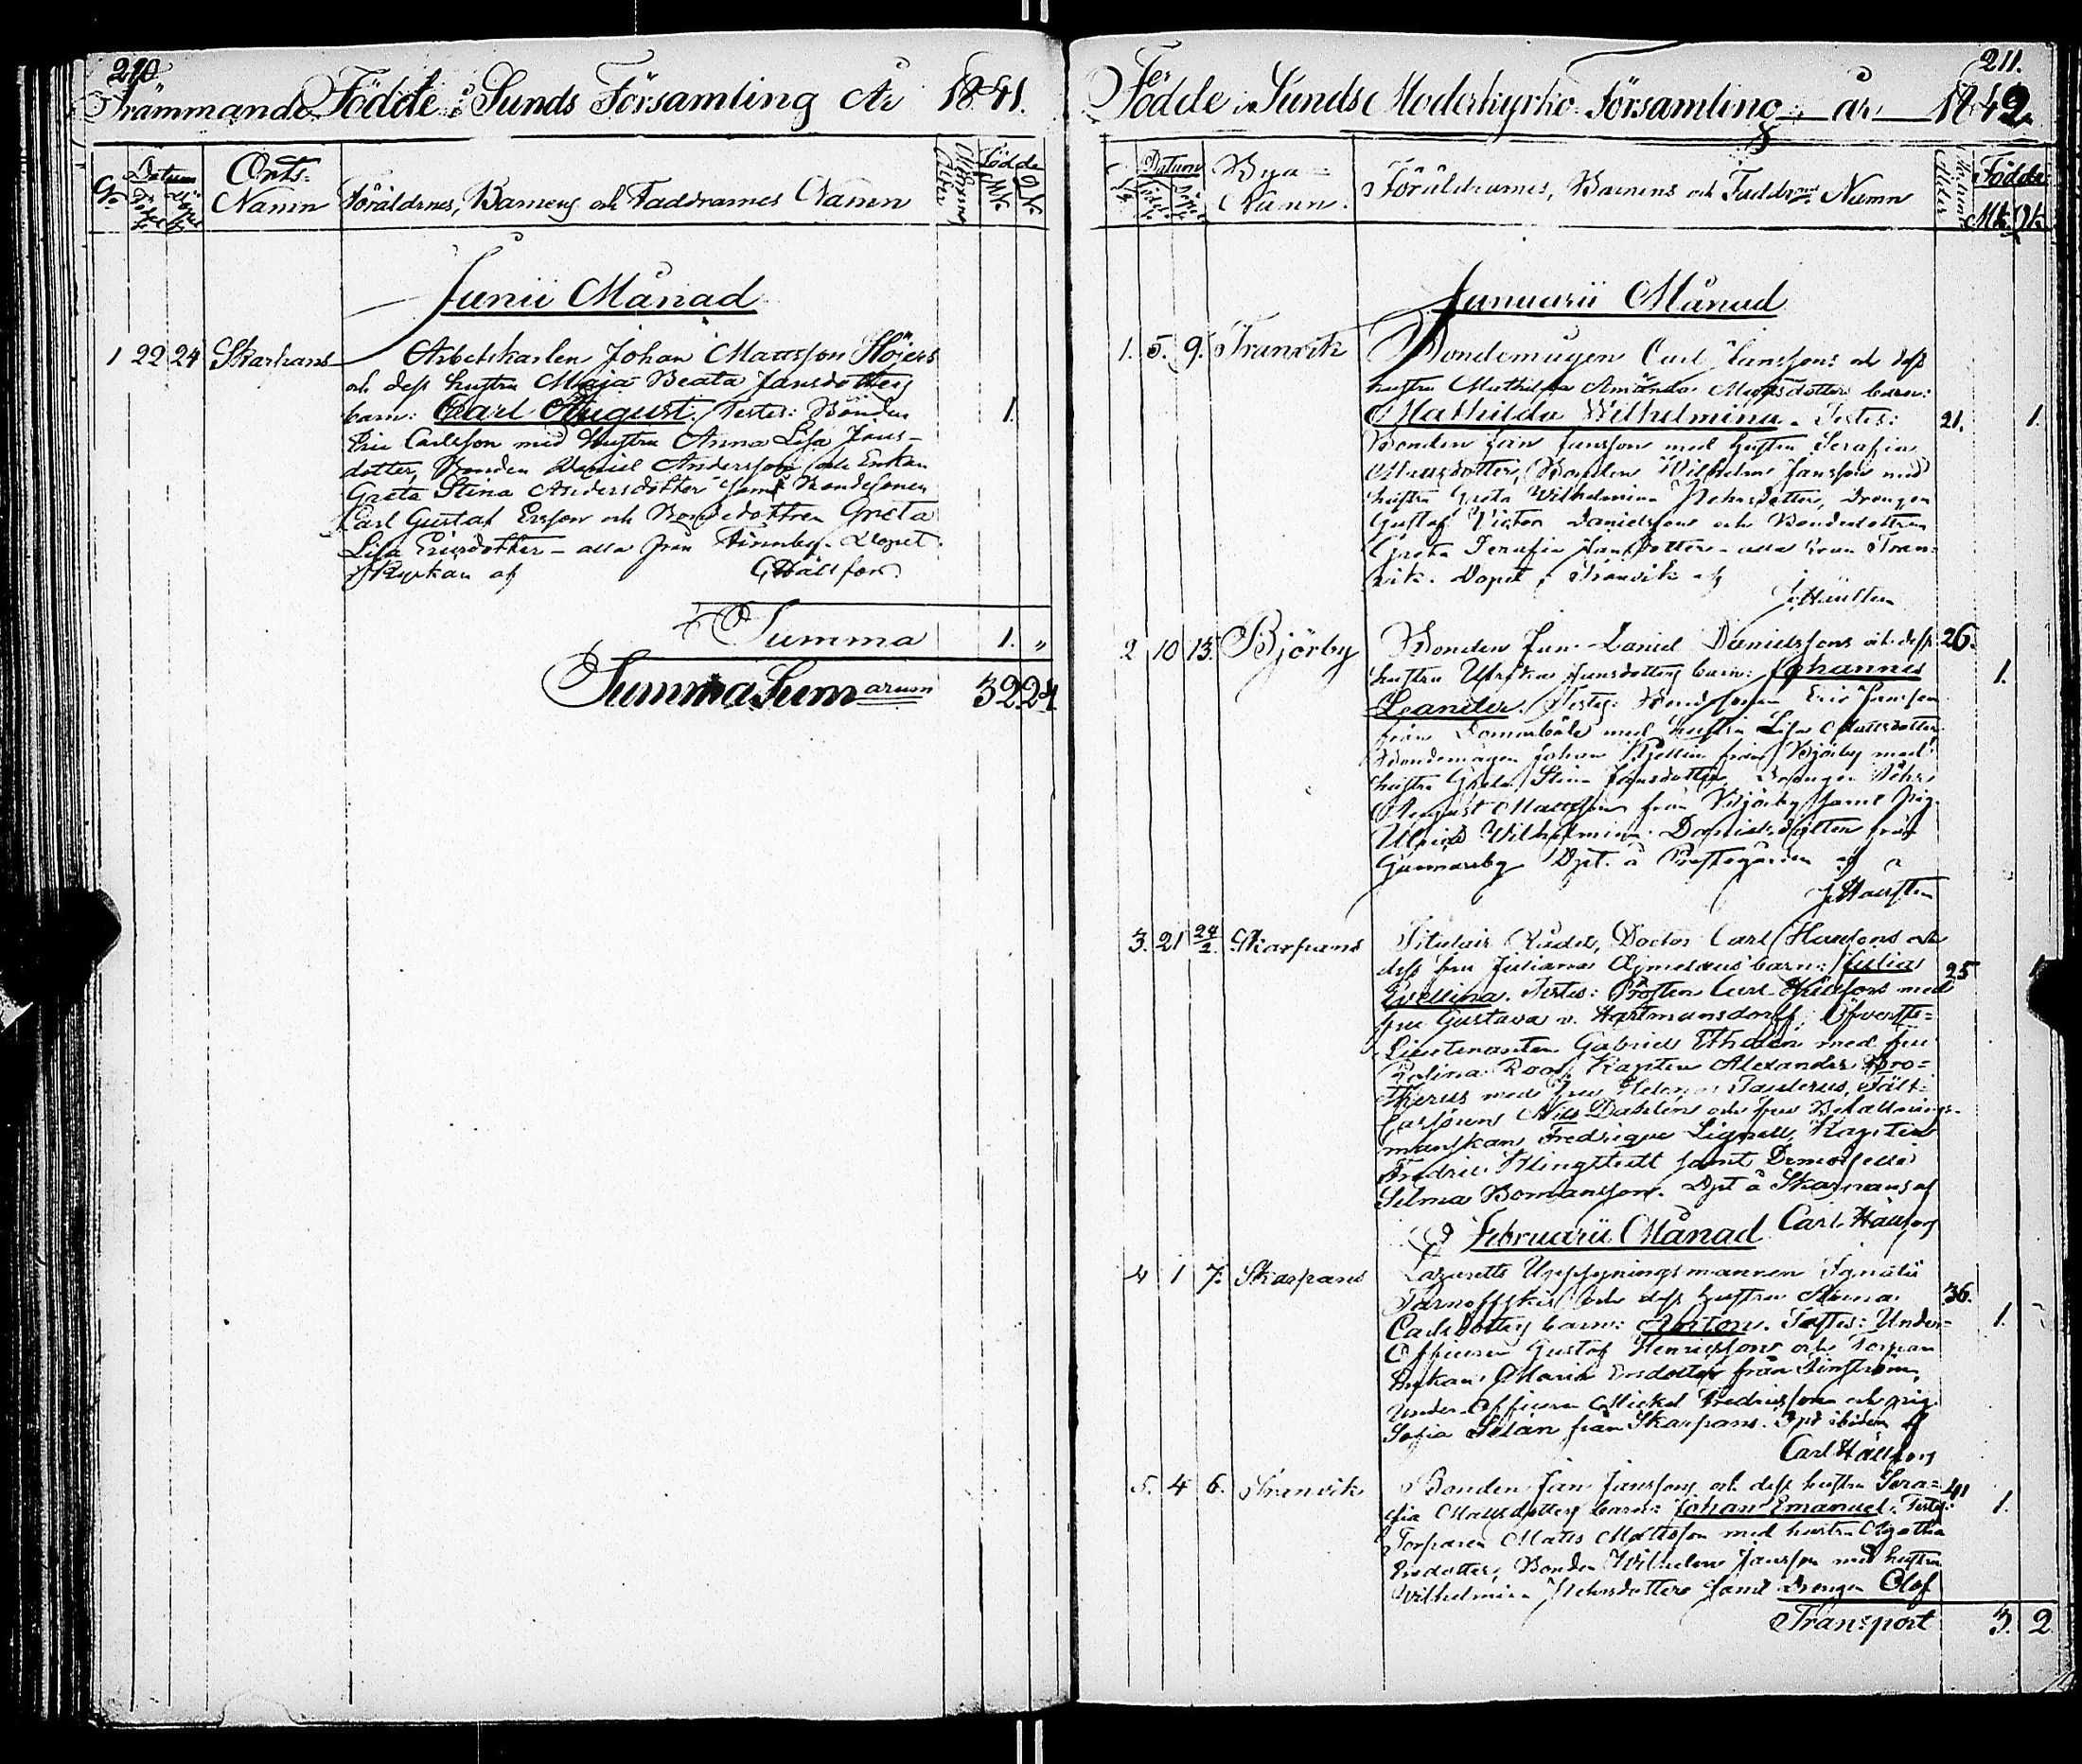 210.
Främmande Födde i Sunds Församling År 1841.
No. Datum Födelse Döpelse Orts-Namn Föräldrnes, Barnens och Faddrarnes Namn Födde Mk. Qk.
Junii Månad
1 22 24 Skarpans Arbetskarlen Johan Mattsson Höijers
och dess hustru Maja Beata Jansdotters
barn: Carl August. Testes: Bonden 1.
Eric Carlsson med hustru Anna Lisa Jans-
dotter, Bonden Daniel Andersson och Enkan
Greta Stina Andersdotter samt Bondesonen
Carl Gustaf Ersson och Bondedottren Greta
Lisa Ericsdotter - alla från Finnby. Döpet
i Kyrkan af C Hällfors.
Summa 1. "
Summa Summarum 32 24
211.
Födde i Sunds Moderkyrko-Församling år 1842
Datum Bya-Namn. Föräldrarnes, Barnens och Faddrarnes Namn Födde Mk. Qk.
Januarii Månad
1. 5. 9. Tranvik Bondemågen Carl Janssons och dess
hustru Mathilda Amanda Mattsdotters barn:
Mathilda Wilhelmina. Testes: 21. 1.
Bonden Jan Jansson med hustru Serafia
Mattsdotter, Bonden Wilhelm Jansson med
hustru Greta Wilhelmina Pehrsdotter, Drengen
Gustaf Victor Danielsson och Bondedottren
Greta Serafia Jansdotter - alla från Tran-
vik. Döpet i Tranvik af
2 10 13. Björby Bonden Jan Daniel Danielssons och dess 26.
hustru Ulrika Jansdotters barn: Johannes 1.
Leander. Testes: Eric Jansson
från Domarböle med hustru Lisa Mattsdotter
Bondemågen Johan från Björby med
hustru Greta Stina Jansdotter, Drengen Pehr
August Mattsson från Björby samt pig.
Ulrica Wilhelmina Danielsdotter från
Gunnarsby Dpt. å Prestegården af
3. 21 24/2. Skarpans Titulair Rådet, Doctor Carl Hällfors och
dess fru Juliana barn: Julia 25
Evelina. Testes: Prosten Carl Hällfors med
fru Gustava v. Hartmansdorff, Öfverste-
Lieutenanten Gabriel Etholén med fru
Roos, Kapten Alexander Pro-
med fru Helena Fält-
Nils Dahlén och fru Befallnings-
manskan Fredrique Lignell, Kapten
Fredric Klingstedt samt Demoiselle
Selma Bomansson. Dpt å Skarpans af
Carl Hällfors
Februarii Månad
4 1 7. Skarpans Lazaretts Uppsyningsmannen Ignatii
Tarnoffskis och dess hustru Anna 36.
Carlsdotters barn: Anton. Testes: Under- 1.
Officeren Gustaf Henricsson och Torpare
Enkan Maria Ersdotter från Finström,
Under Officeren Mickel Fredricsson och pig.
Sofia Selan från Skarpans. Dpt ibidem af
Carl Hällfors
5. 4 6. Tranvik Bonden Jan Janssons och dess hustru Sera- 41
fia Mattsdotters barn: Johan Emanuel. Testes: 1.
Torparen Matts Mattsson med hustru Agatha
Ersdotter, Bonden Wilhelm Jansson med hustru
Wilhelmina Pehrsdotter samt Drengen Olof
Transport 3. 2